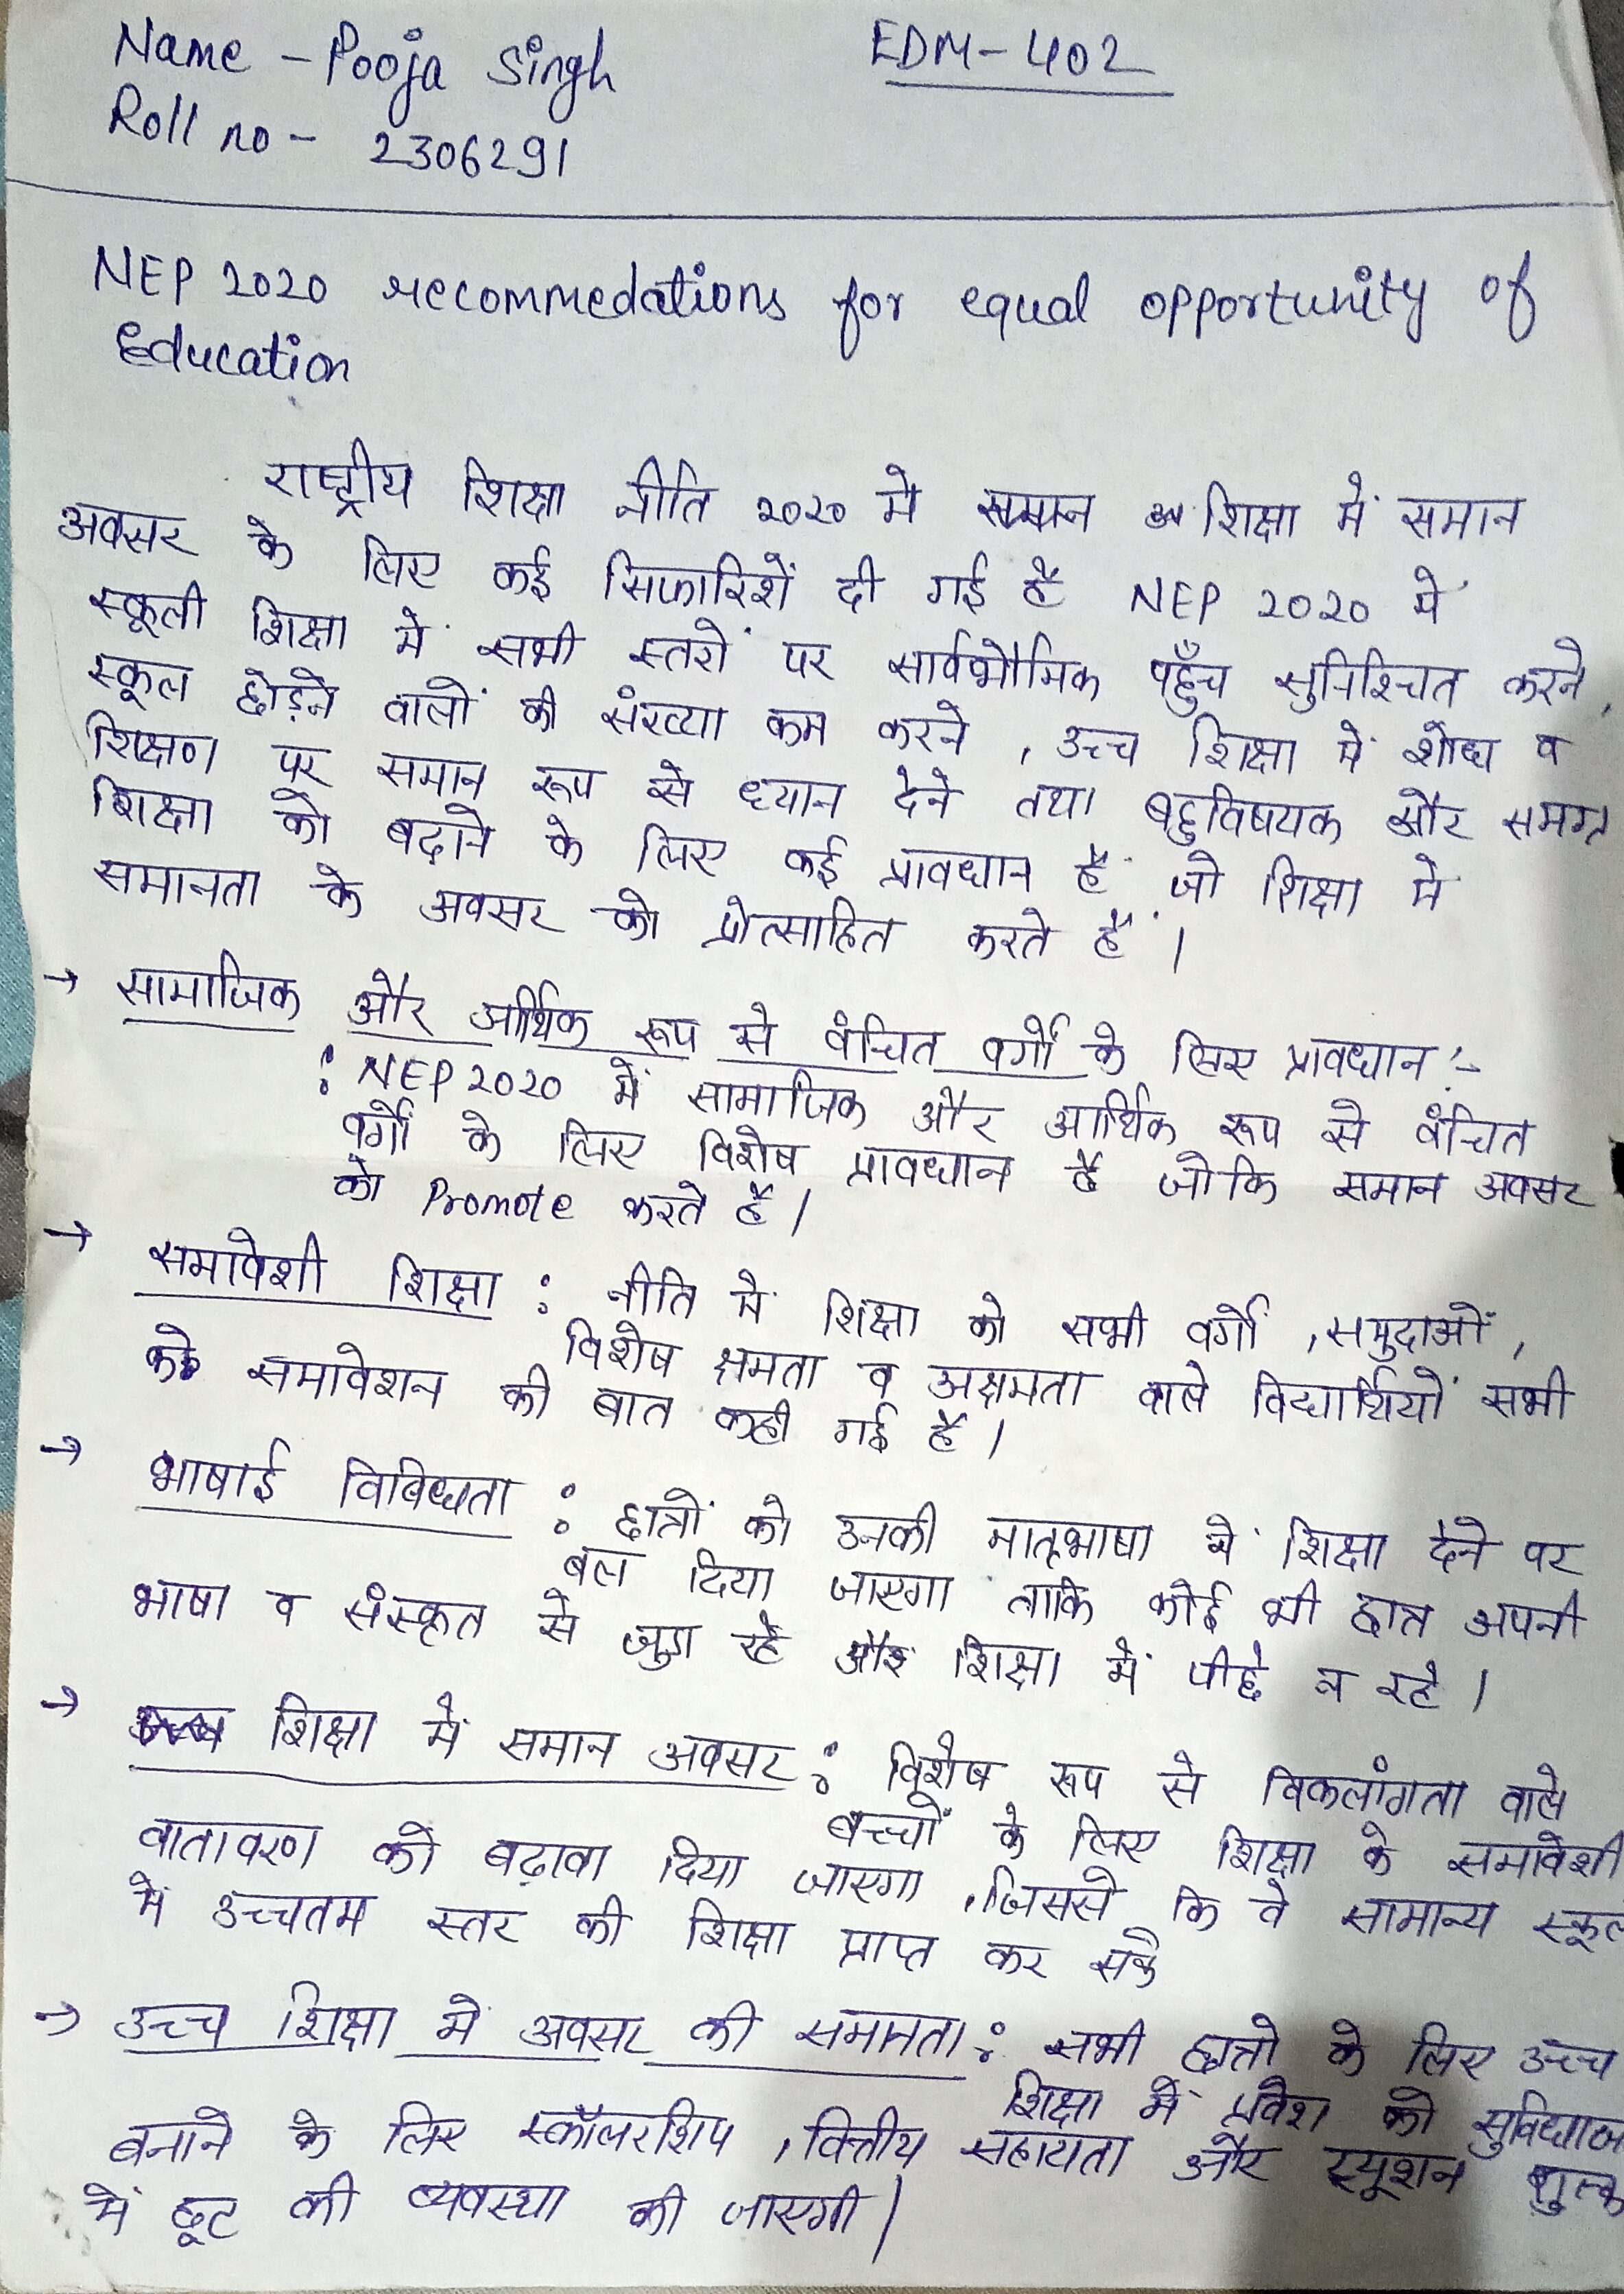 Name - Pooja Singh
EDM-402
Roll no - 2306291
NEP 2020 recommedations for equal opportunity of
Education
राष्ट्रीय शिक्षा नीति 2020 मे शिक्षा में समान
अवसर के लिए कई सिफारिशें दी गई है NEP 2020 मे
स्कूली शिक्षा में सभी स्तरों पर सार्वभौमिक पहुँच सुनिश्चित करने,
स्कूल छोड़ने वालों की संख्या कम करने, उच्च शिक्षा में शोध व
शिक्षण पर समान रूप से ध्यान देने तथा बहुविषयक और समग्र
शिक्षा को बढ़ाने के लिए कई प्रावधान हैं जो शिक्षा में
समानता के अवसर को प्रोत्साहित करते हैं।
→ सामाजिक और आर्थिक रूप से वंचित वर्गो के लिए प्रावधान :-
: NEP 2020 में सामाजिक और आर्थिक रूप से वंचित
वर्गो के लिए विशेष प्रावधान है जोकि समान अवसर
को Promote करते है।
→ समावेशी शिक्षा : नीति मे शिक्षा को सभी वर्गो, समुदाओं,
विशेष क्षमता व अक्षमता वाले विद्यार्थियों सभी
के समावेशन की बात कही गई है।
→ भाषाई विबिधता : छात्रों को उनकी मातृभाषा मे शिक्षा देने पर
बल दिया जाएगा ताकि कोई भी छात्र अपनी
भाषा व संस्कृत से जुड़ा रहे और शिक्षा में पीछे न रहे।
→ शिक्षा में समान अवसर : विशेष रूप से विकलांगता वाले
बच्चों के लिए शिक्षा के समावेशी
वातावरण को बढ़ावा दिया जाएगा, जिससे कि वे सामान्य स्कूल
में उच्चतम स्तर की शिक्षा प्राप्त कर सकें
→ उच्च शिक्षा मे अवसर की समानता : सभी छात्रो के लिए उच्च
शिक्षा में प्रवेश को
बनाने के लिए स्कॉलरशिप, वित्तीय सहायता और ट्यूशन शुल्क
में छूट की व्यवस्था की जाएगी।